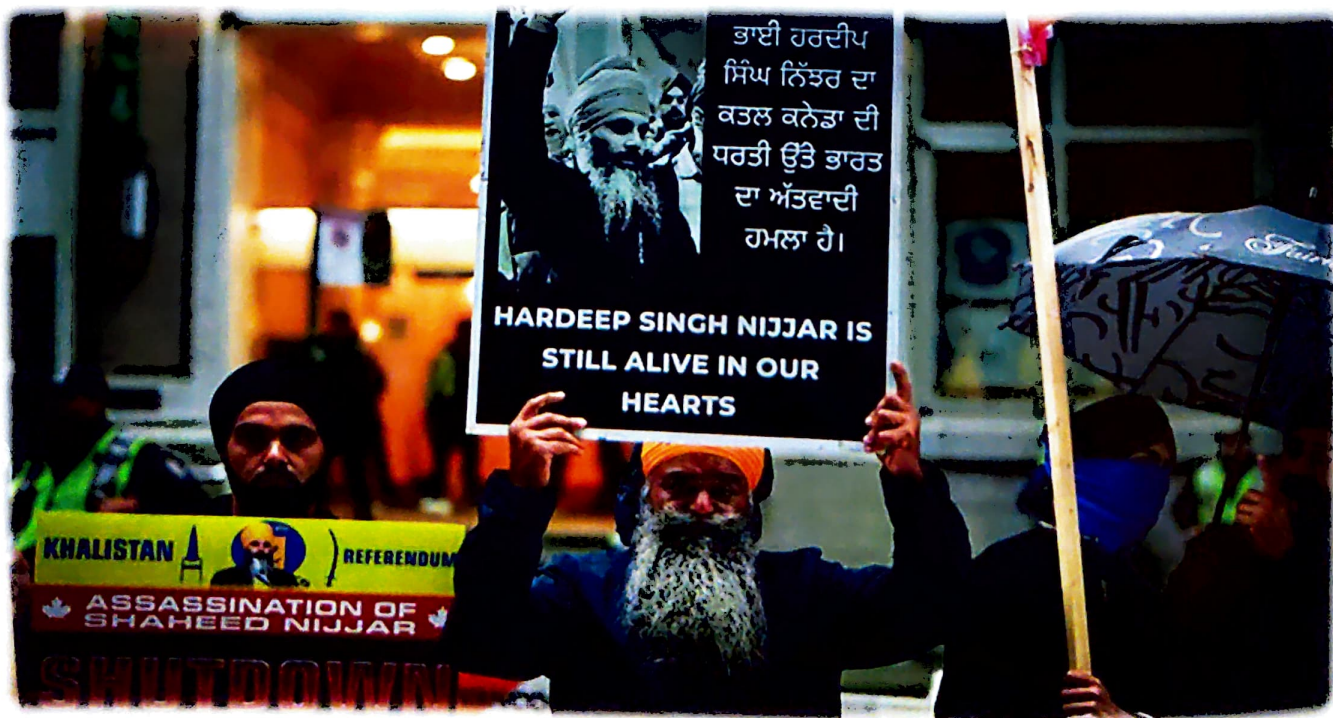 ਭਾਈ ਹਰਦੀਪ
ਸਿੰਘ ਨਿੱਝਰ ਦਾ
ਕਤਲ ਕਨੇਡਾ ਦੀ
ਧਰਤੀ ਉੱਤੇ ਭਾਰਤ
ਦਾ ਅੱਤਵਾਦੀ
ਹਮਲਾ ਹੈ।
HARDEEP SINGH NIJJAR IS
STILL ALIVE IN OUR
HEARTS
KHALISTAN REFERENDUM
ASSASSINATION OF
SHAHEED NIJJAR
SHUTDOWN